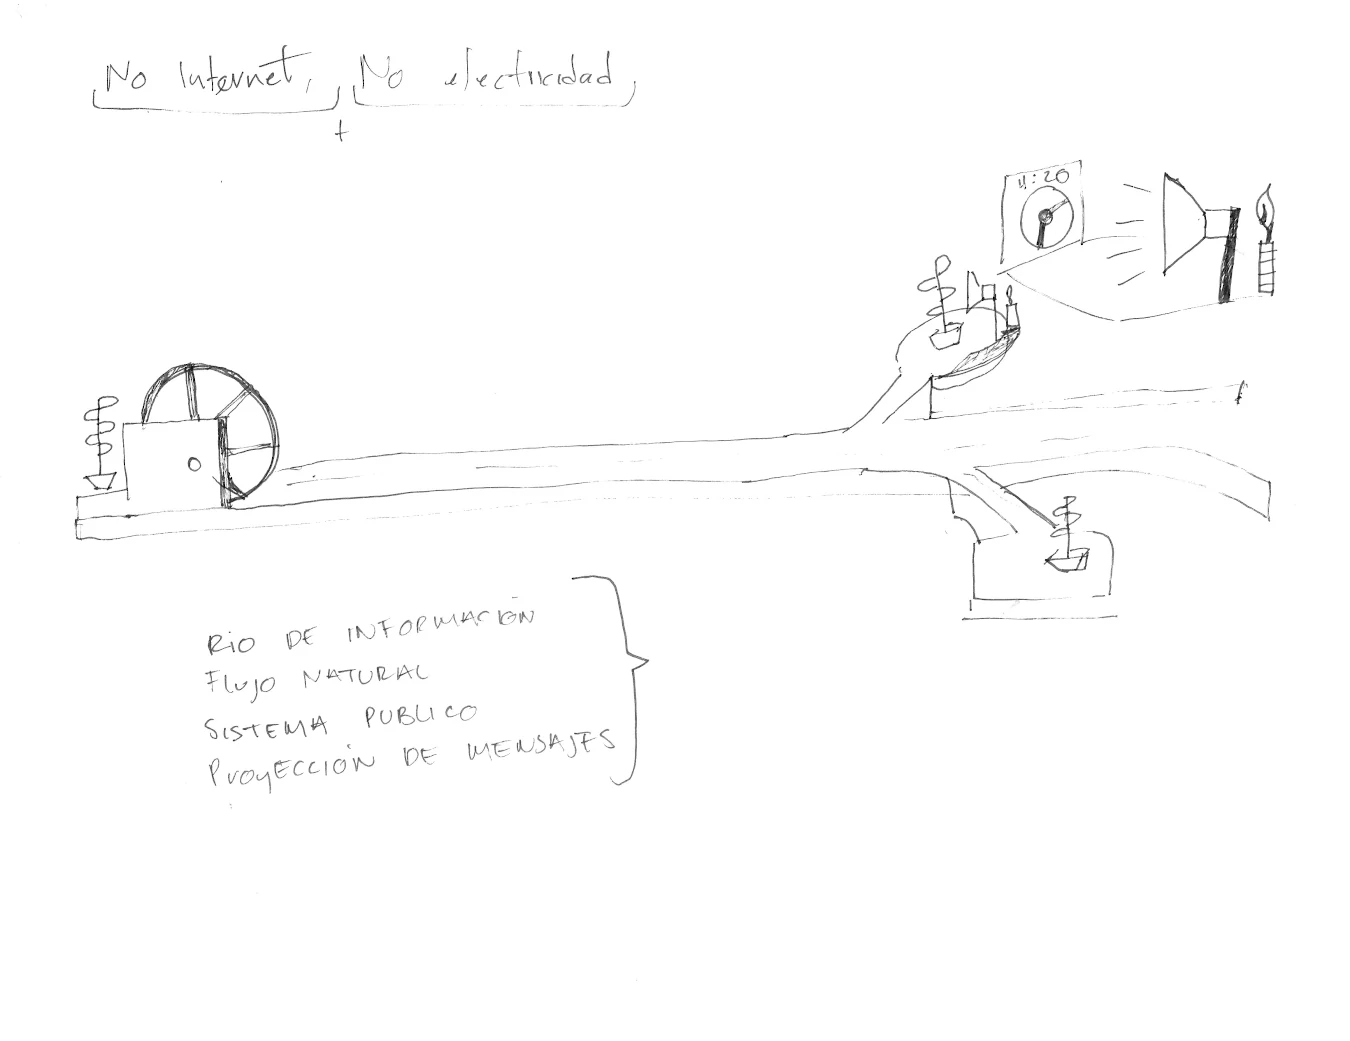 No Internet, No electricidad,
+
4:20
RiO DE INFORMACIÓN
Flujo NATURAL
SISTEMA PUBLICO
PROYECCIÓN DE MENSAJES